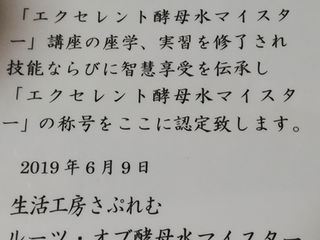 「エクセレント酵母水マイスタ
ー」講座の座学、実習を修了され
技能ならびに智慧享受を伝承し
「エクセレント酵母水マイスタ
ー」の称号をここに認定致します。
2019年6月9日
生活工房さぷれむ
ルーツ・オブ酵母水マイスター